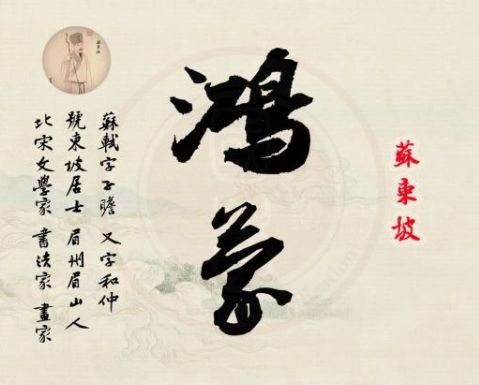 蘇東坡
鴻蒙
蘇軾字子瞻 又字和仲
號東坡居士 眉州眉山人
北宋文學家 書法家 畫家